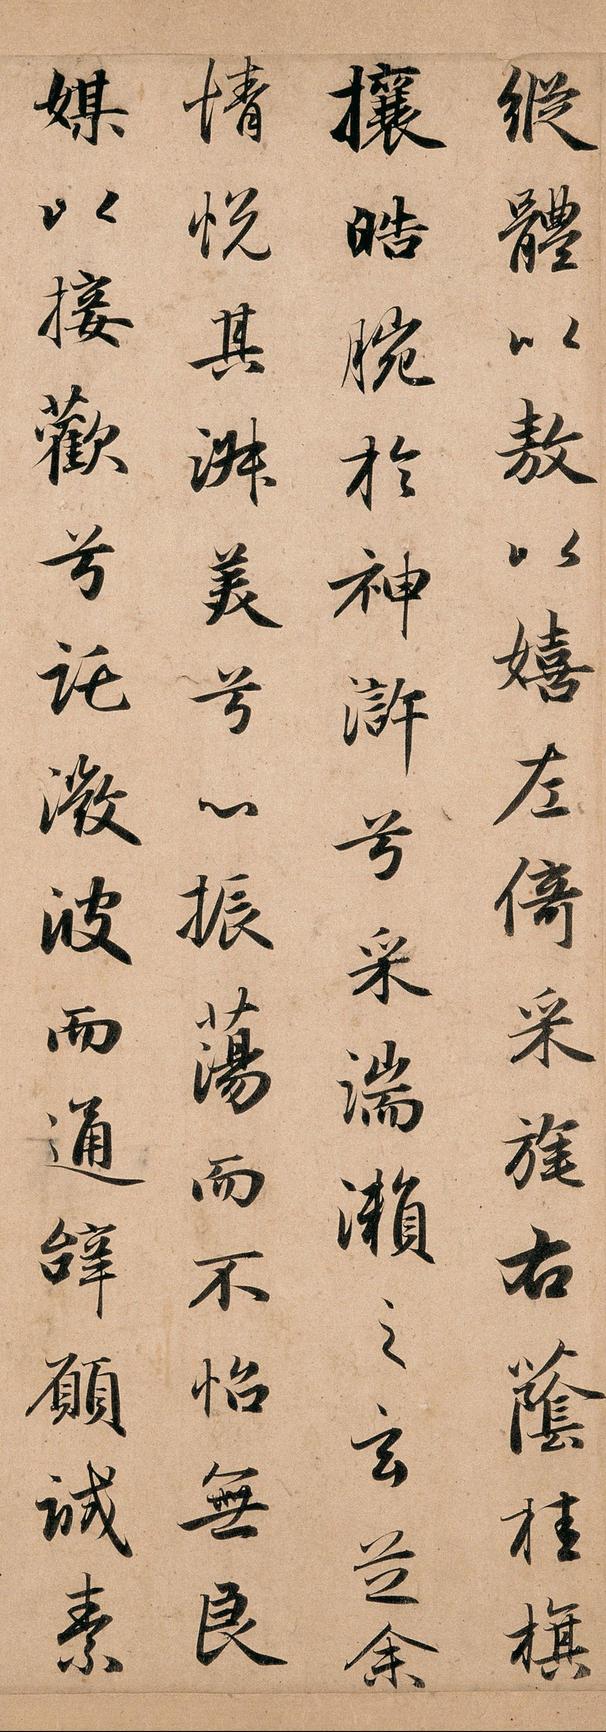 縱體以敖以嬉左倚采旄右蔭桂旗
攘皓腕於神滸兮采湍瀨之玄芝余
情悦其淑美兮心振蕩而不怡無良
媒以接歡兮託微波而通辭願誠素